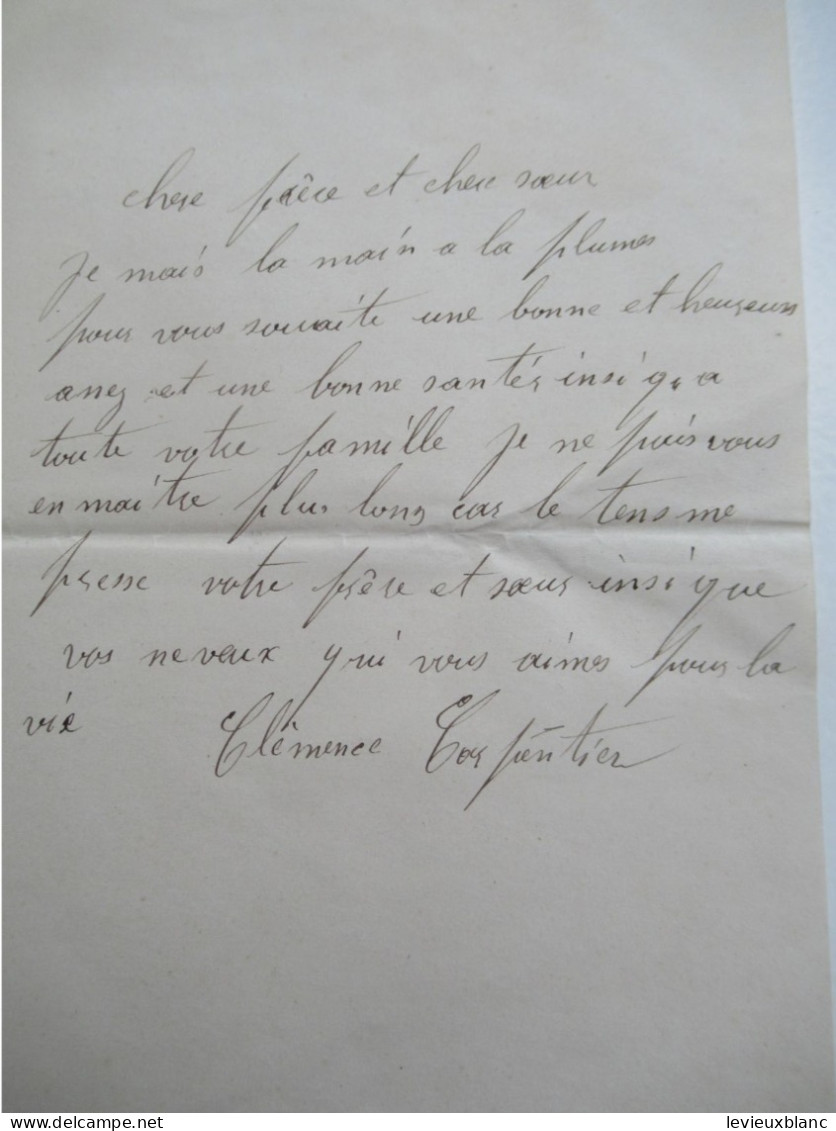 chere frère et chere sœur
Je mais la main a la plumes
pour vous souaite une bonne et heureuse
anez et une bonne santér insi qu a
toute votre famille Je ne puis vous
en maitre plus long car le tens me
presse votre frère et sœur insi que
vos neveux qui vous aimes pour la
vie Clémence Carpentier
levieuxblanc